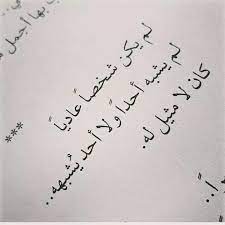 بها أجمل
لم يكن شخصاً عادياً
لم يشبه أحداً ولا أحد يُشبهه..
كان لا مثيل له.
***